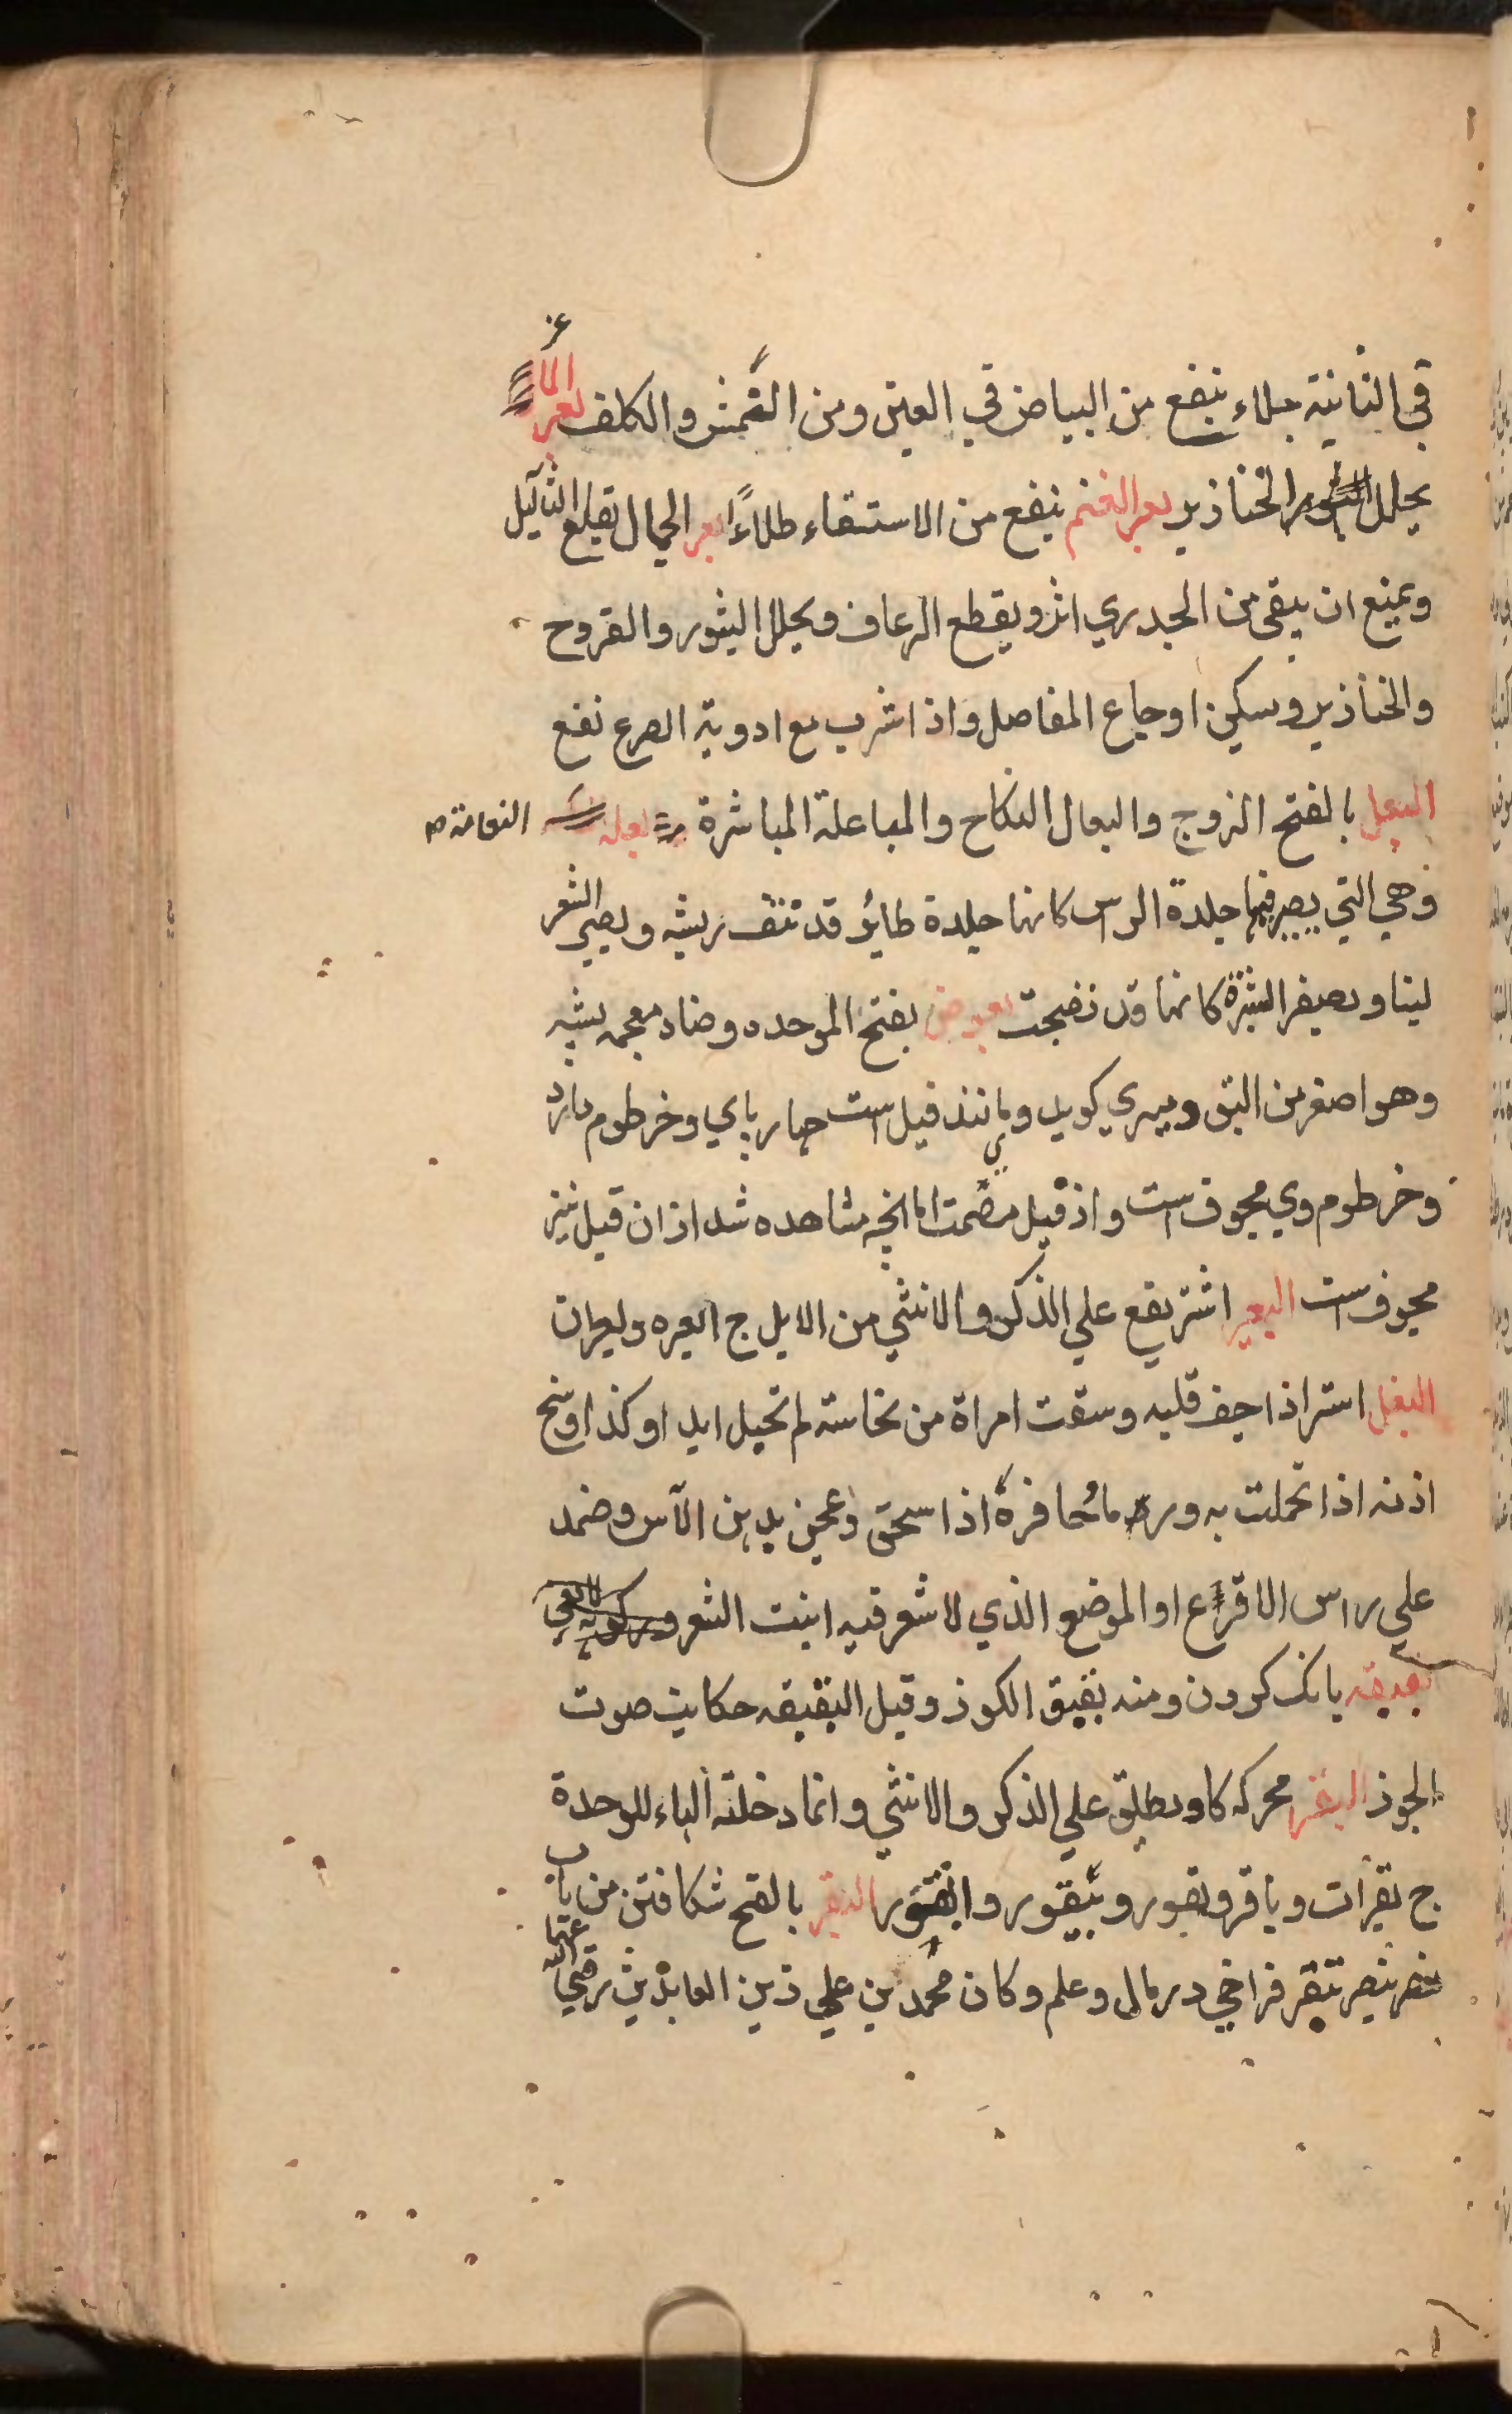 في الثانية جلاء ينفع من البياض في العين ومن النمش والكلف بعر الماعز
يحلل الخنازير بعر الغنم ينفع من الاستسقاء طلاءً بعر الجمال يقلع الثآليل
ويمنع ان يبقي من الجدري اثر ويقطع الرعاف ويحلل البثور والقروح
والخنازير وسكين اوجاع المفاصل واذا شرب مع ادوية الصرع نفع
البعل بالفتح الزوج والبعال النكاح والمباعلة المباشرة النعامة
وهي التي يصير فيها جلدة الراس كانها جلدة طائر قد نتف ريشه ويصير الشعر
لينا ويصفر البثرة كانها قد نضجت بعوض بفتح الموحده وضاد معجمه پشه
وهو اصغر من البق وبيري كويد ومانند فيل است چهار پاي وخرطوم دارد
وخرطوم وي مجوف است واز فيل مصمت اما انچه مشاهده شد از ان فيل نيز
مجوف است البعير اشتر يقع علي الذكر والانثي من الابل ج ابعره وبعران
البغل استر اذا جفف قلبه وسقت امراة من نحاسته لم تحبل ابدا وكذا وسخ
اذنه اذا تحملت به ورماد حافرة اذا سحق وعجن بدهن الآس وضمد
علي راس الاقرع او الموضع الذي لا شعر فيه انبت الشعر
بقبقه بانک کردن ومنه بقبق الكوز وقيل البقبقه حكايت صوت
الجوز البقر محركه كاو ويطلق علي الذكر والانثي وانما دخلته الهاء للوحدة
ج بقرات وباقر وبقور وبيقور وابقور البقر بالفتح شكافتن من باب
نصر ينصر تبقر فراخي در مال وعلم وكان محمد بن علي زين العابدين رضي الله عنهما